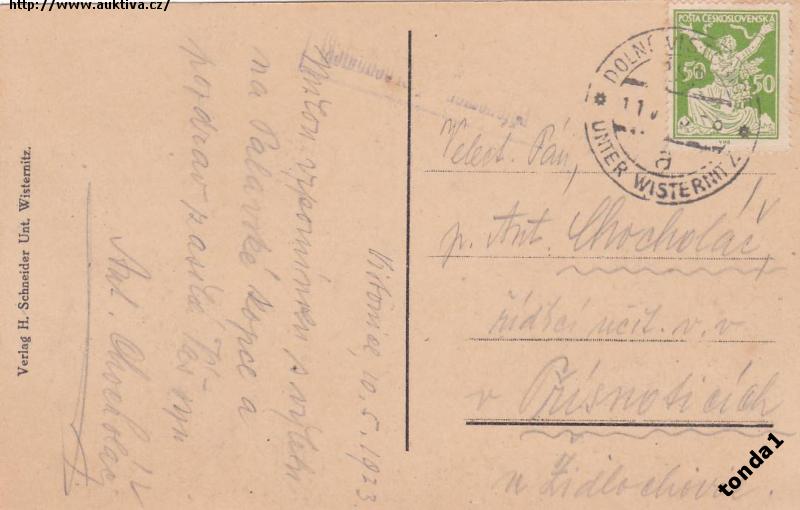 http://www.auktiva.cz/
Verlag H. Schneider Unt. Wisternitz.
Vistonice, 10.5.1923.
vzpomínku z výletu
na Palavské kopce a
pozdrav zasílá Váš syn
Ant. Chocholáč
POŠTA ČESKOSLOVENSKÁ
50 50
UNTER WISTERNITZ
a
Velect. Pán,
p. Ant. Chocholáč,
řídící učit. v. v.
v Přísnoticích
u Židlochovic.
tonda1